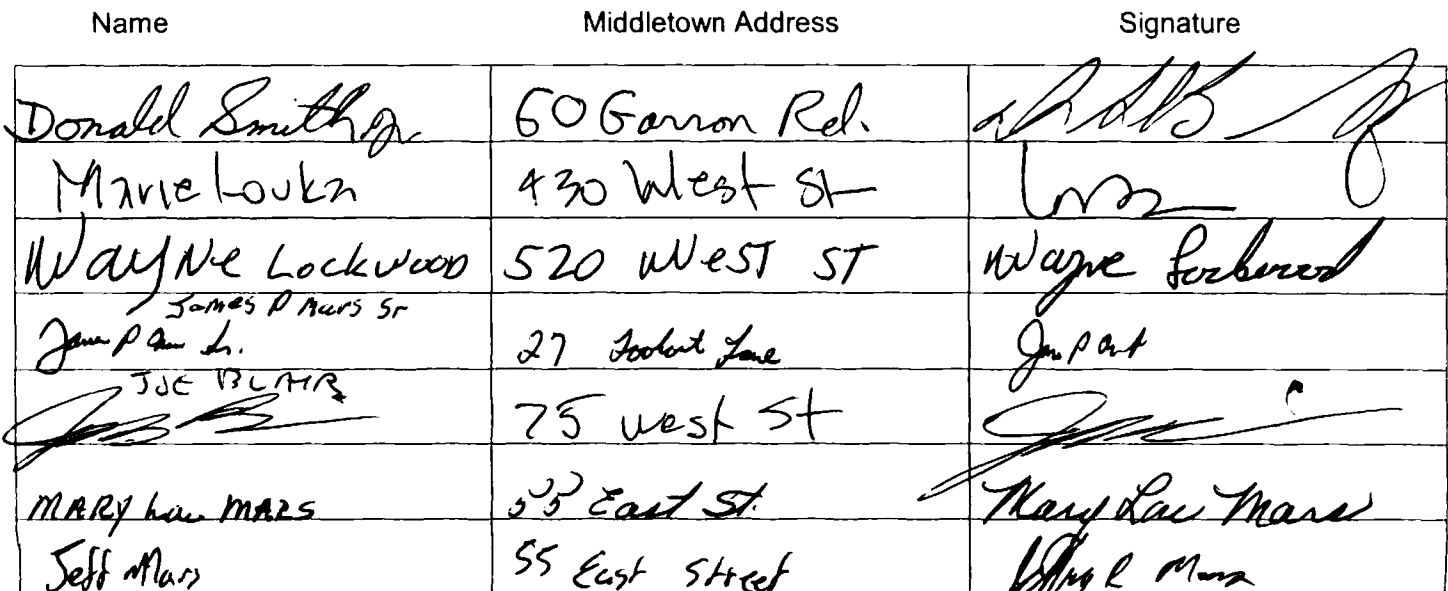 Name Middletown Address Signature
Donald Smith Jr 60 Garron Rd.
Marie Louka 430 West St
Wayne Lockwood 520 West ST Wayne Lockwood
James P Mars Sr
27 Lookout Lane
JOE BLAIR
75 west St
MARY Lou MARS 55 East St. Mary Lou Mars
Jeff Mars 55 East Street